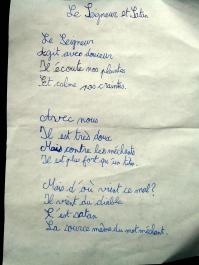 Le Seigneur et Satan
Le Seigneur
Agit avec douceur
Il écoute nos plaintes
Et calme nos craintes.
Avec nous
Il est très doux
Mais contre les méchants
Il est plus fort qu'un titan.
Mais d'où vient ce mal?
Il vient du diable
C'est satan
La source même du mot méchant.